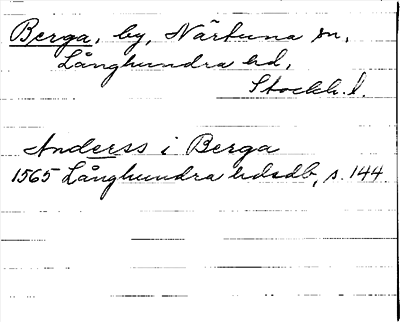 Berga, by, Närtuna sn,
Långhundra hd,
Stockh. l.
Anderss i Berga
1565 Långhundra hdsdb, s. 144